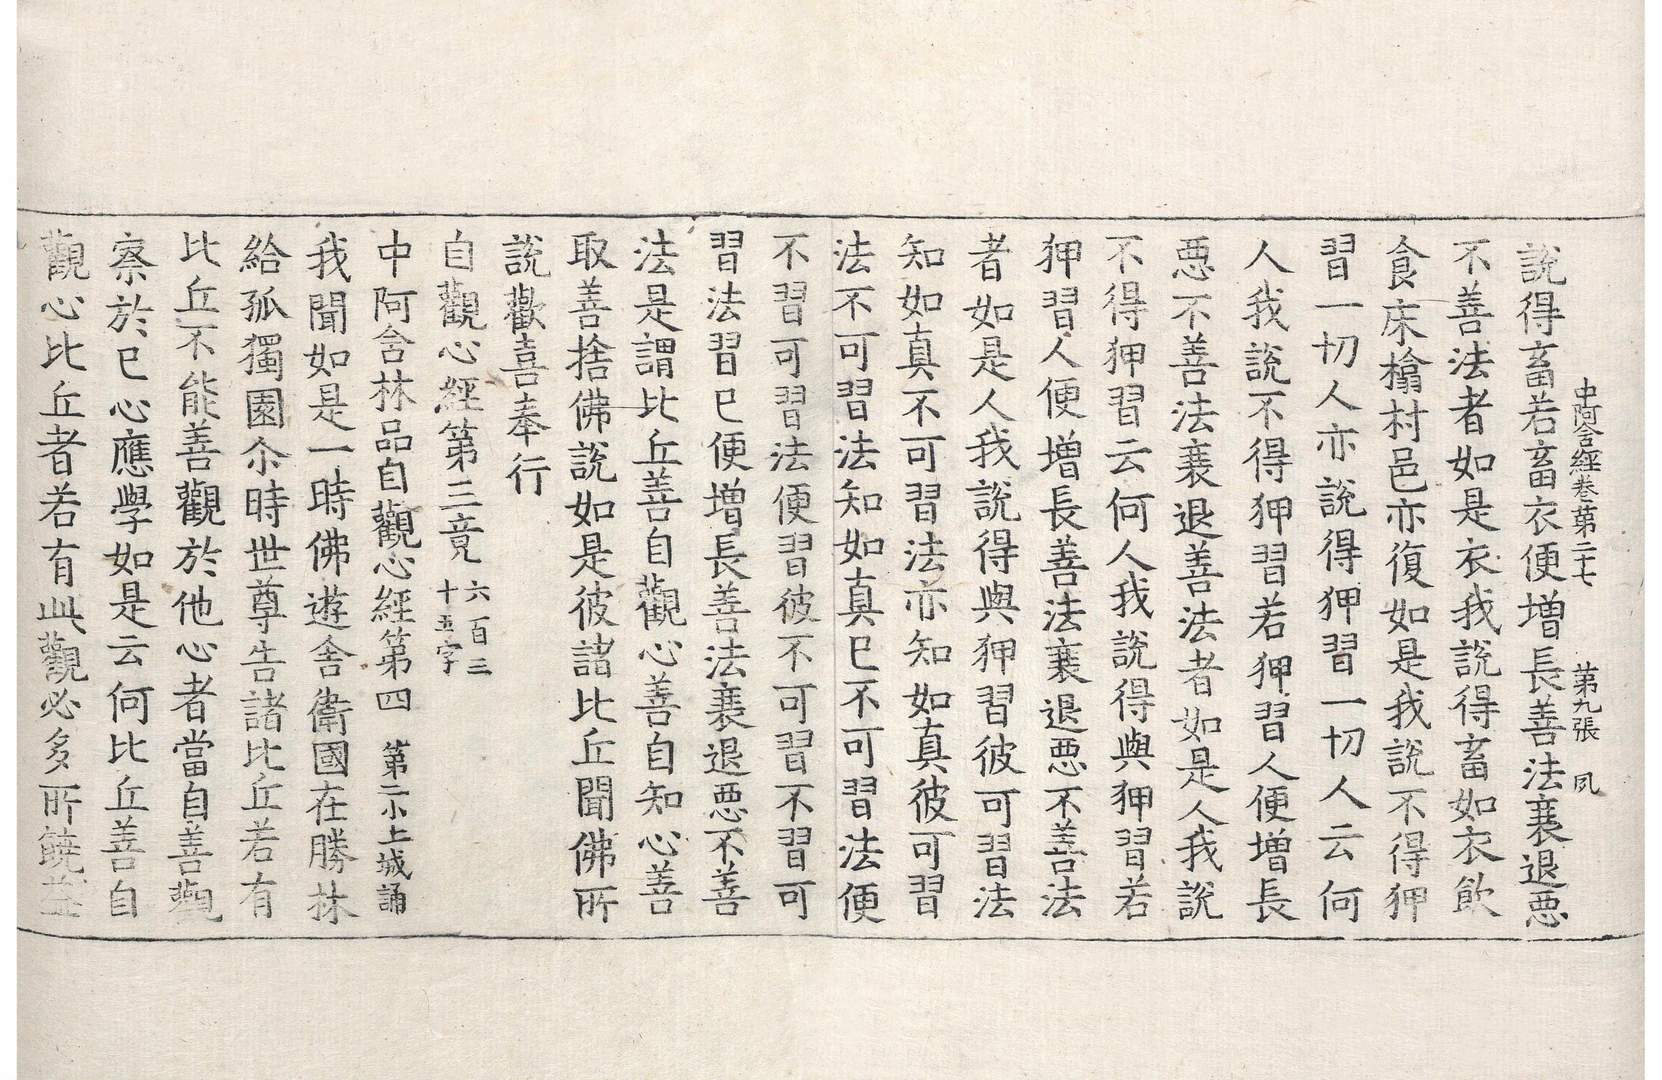 中阿含經卷第二十七　第九張　夙
說得畜若畜衣便增長善法衰退惡
不善法者如是衣我說得畜如衣飲
食床榻村邑亦復如是我說不得狎
習一切人亦說得狎習一切人云何
人我說不得狎習若狎習人便增長
惡不善法衰退善法者如是人我說
不得狎習云何人我說得與狎習若
狎習人便增長善法衰退惡不善法
者如是人我說得與狎習彼可習法
知如真不可習法亦知如真彼可習
法不可習法知如真已不可習法便
不習可習法便習彼不可習不習可
習法習已便增長善法衰退惡不善
法是謂比丘善自觀心善自知心善
取善捨佛說如是彼諸比丘聞佛所
說歡喜奉行
自觀心經第三竟 六百三十五字
中阿含林品自觀心經第四　第二小土城誦
我聞如是一時佛遊舍衛國在勝林
給孤獨園尒時世尊告諸比丘若有
比丘不能善觀於他心者當自善觀
察於已心應學如是云何比丘善自
觀心比丘者若有此觀必多所饒益